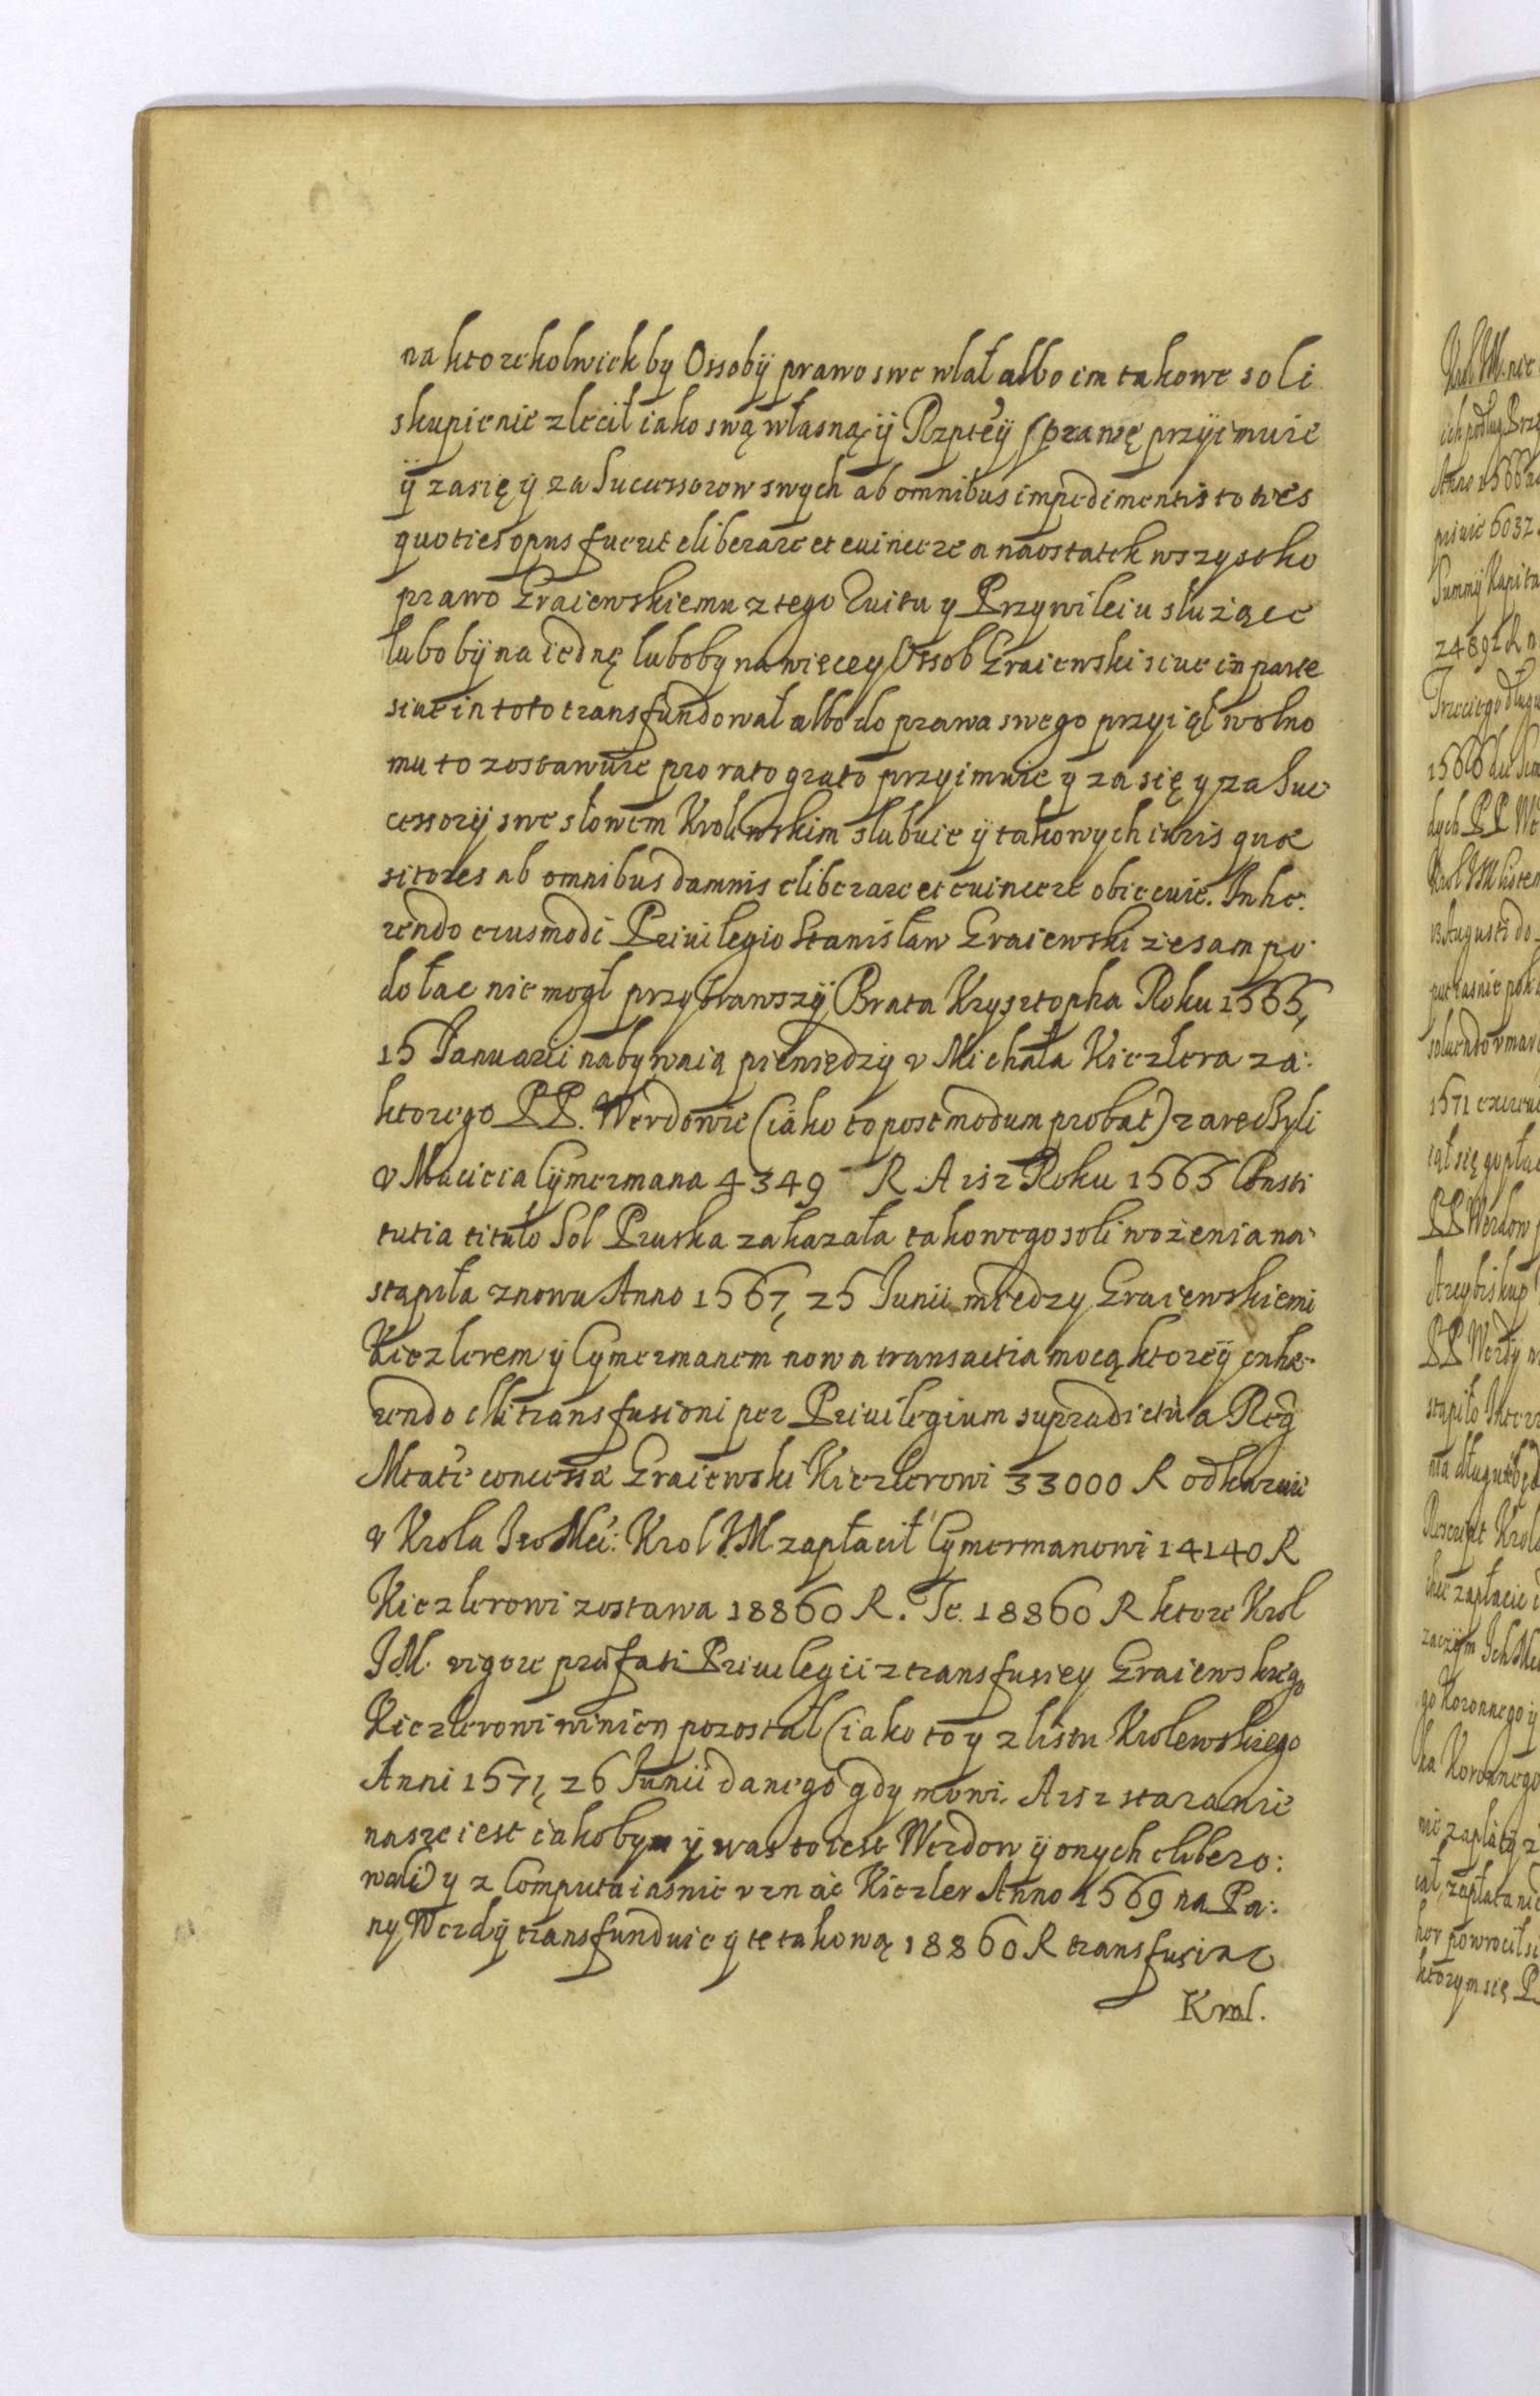 na ktorekolwiek by Ossobÿ prawo swe wlał albo im takowe soli
skupienie zlecił iako swą własną ÿ Rzptéÿ sprawę przÿimuie
ÿ za się ÿ za Sucessorow swych ab omnibus impedimentis toties
quoties opus fuerit eliberare et euincere a naostatek wszystko
prawo Graiewskiemu z tego Quitu y Przywileiu służące
lubo bÿ na iednę luboby na więcey Ossob Graiewski siue in parte
siue in toto transfundował albo do prawa swego przyiął wolno
mu to zostawuie pro rato grato przyimuie y za się y za Suc
cessorÿ swe słowem Krolewskim slubuie ÿ takowych iuris quæ
sitores ab omnibus damnis eliberare et euincere obiecuie. Inhe:
rendo eiusmodi Priuilegio Stanisław Graiewski że sam po
dołac nie mogł przybrawszÿ Brata Krysztopha Roku 1565,
15 Januarii nabywaią pieniędzÿ v Michała Kiezlera za:
ktorego PP. Werdowie (iako to postmodum probat) zaręczyli
v Macieia Cÿmermana 4349 R. A isz Roku 1565 Consti
tutia titulo Sol Pruska zakazała takowego soli wożenia na:
stąpiła znowu Anno 1567, 25 Junii między Graiewskiemi
Kiezlerem ÿ Cymermanem nowa transactia mocą ktoreÿ inhæ-
rendo illi transfusioni per Priuilegium supradictū a Reg
Mtatē concessæ Graiewski Kiezlerowi 33000 R odkazuie
v Krola Jeo Mći: Krol J.M. zapłacił Cÿmermanowi 14140 R
Kiezlerowi zostawa 18860 R. Te 18860 R ktore Krol
J.M. vigore præfati Priuilegii z transfusiey Graiewskiego
Kiezlerowi winien pozostał (iako to y z listu Krolewskiego
Anni 1571, 26 Junii danego gdy mowi. A isz staranie
nasze iest iakobym ÿ was to iest Werdow ÿ onych elibero:
wali) y z Computa iasnie vznać Kiezler Anno 1569 na Pa:
ny Werdÿ transfunduie y te takową 18860 R transfusiae
Krol.